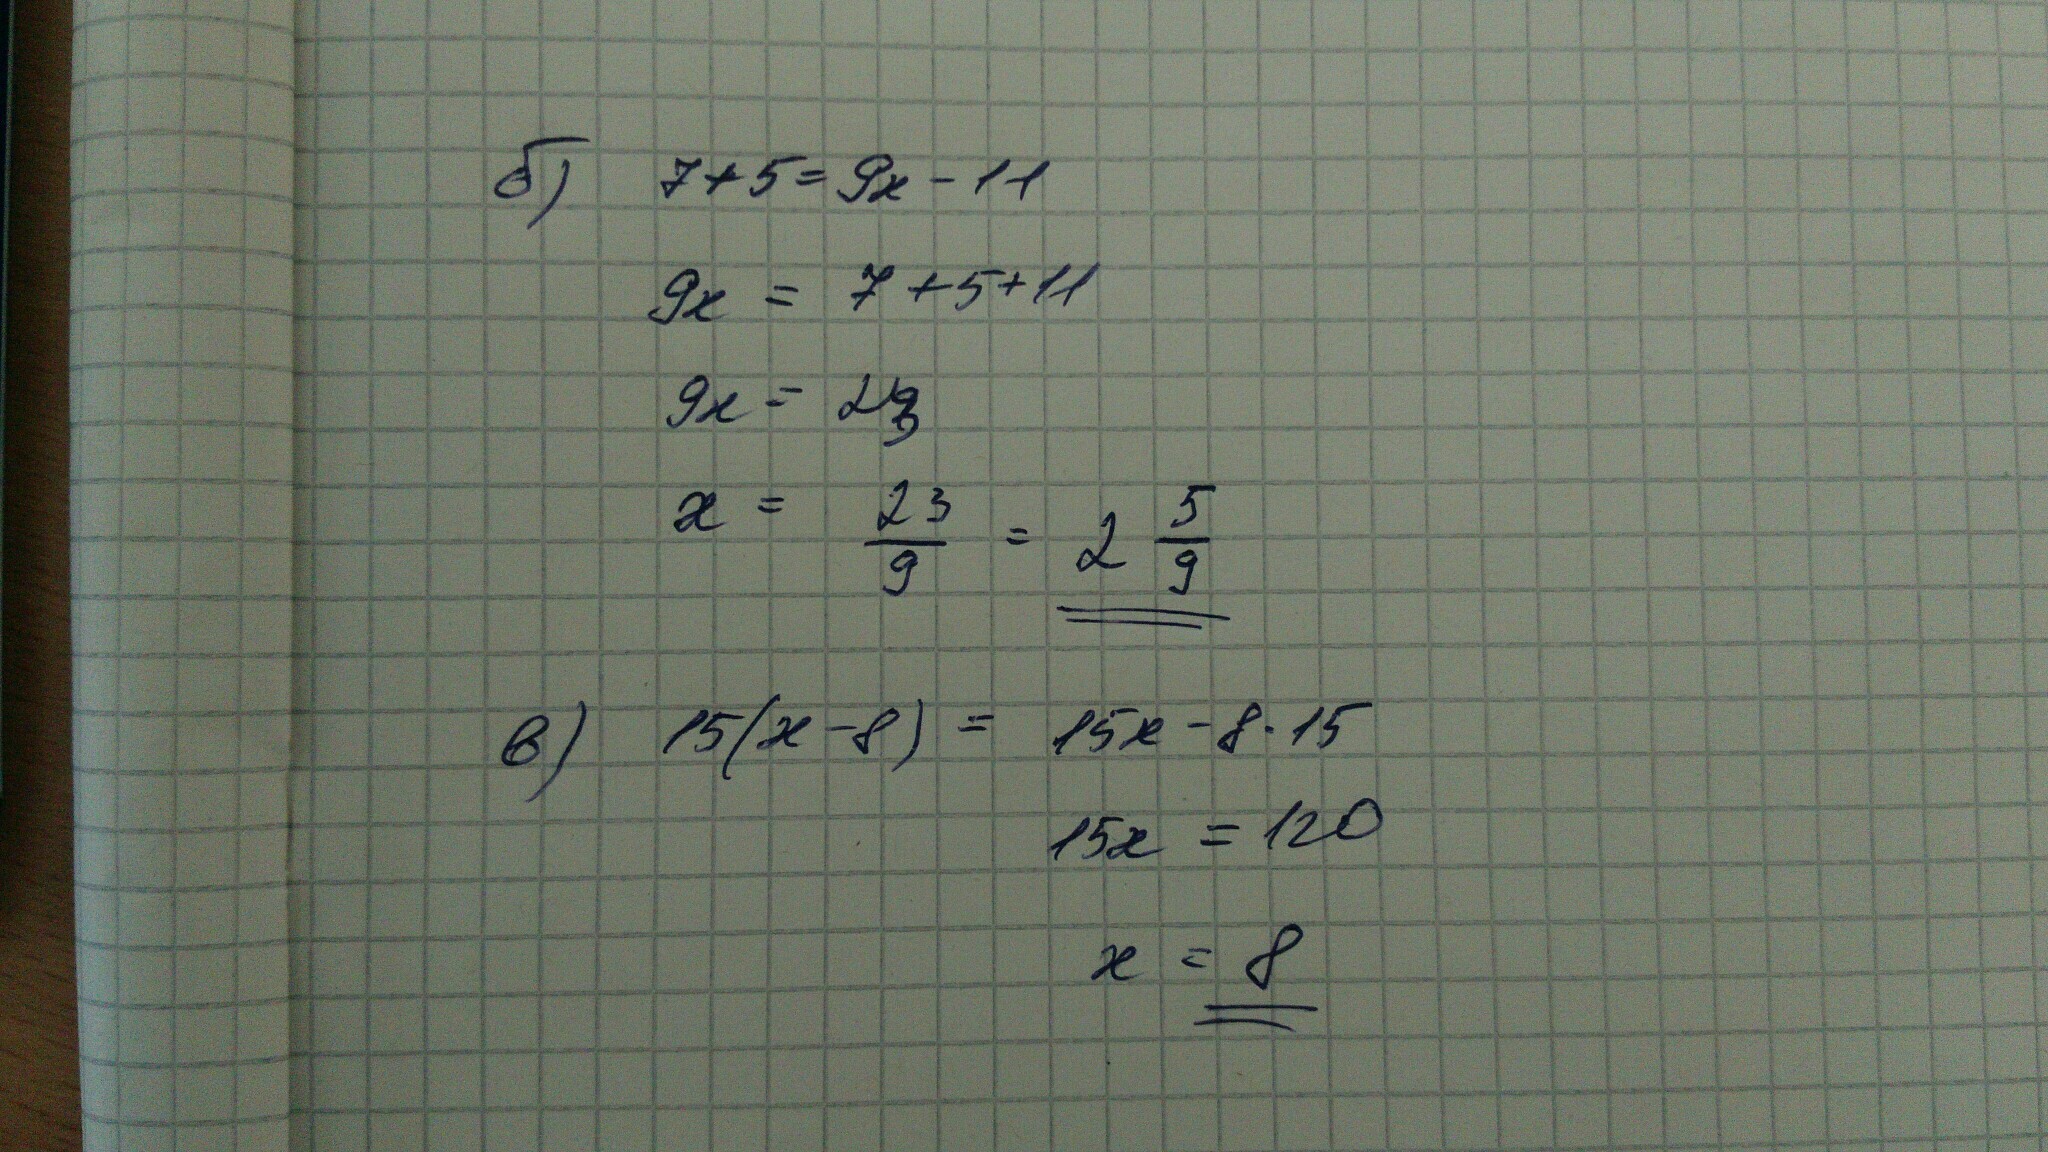 б) 7+5=9x-11
9x = 7+5+11
9x = 23
x = 23/9 = 2 5/9
в) 15(x-8) = 15x-8·15
15x = 120
x = 8